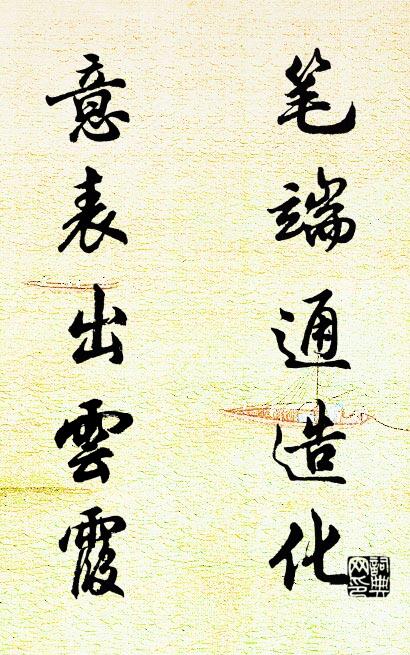 笔端通造化
意表出雲霞
詞典網